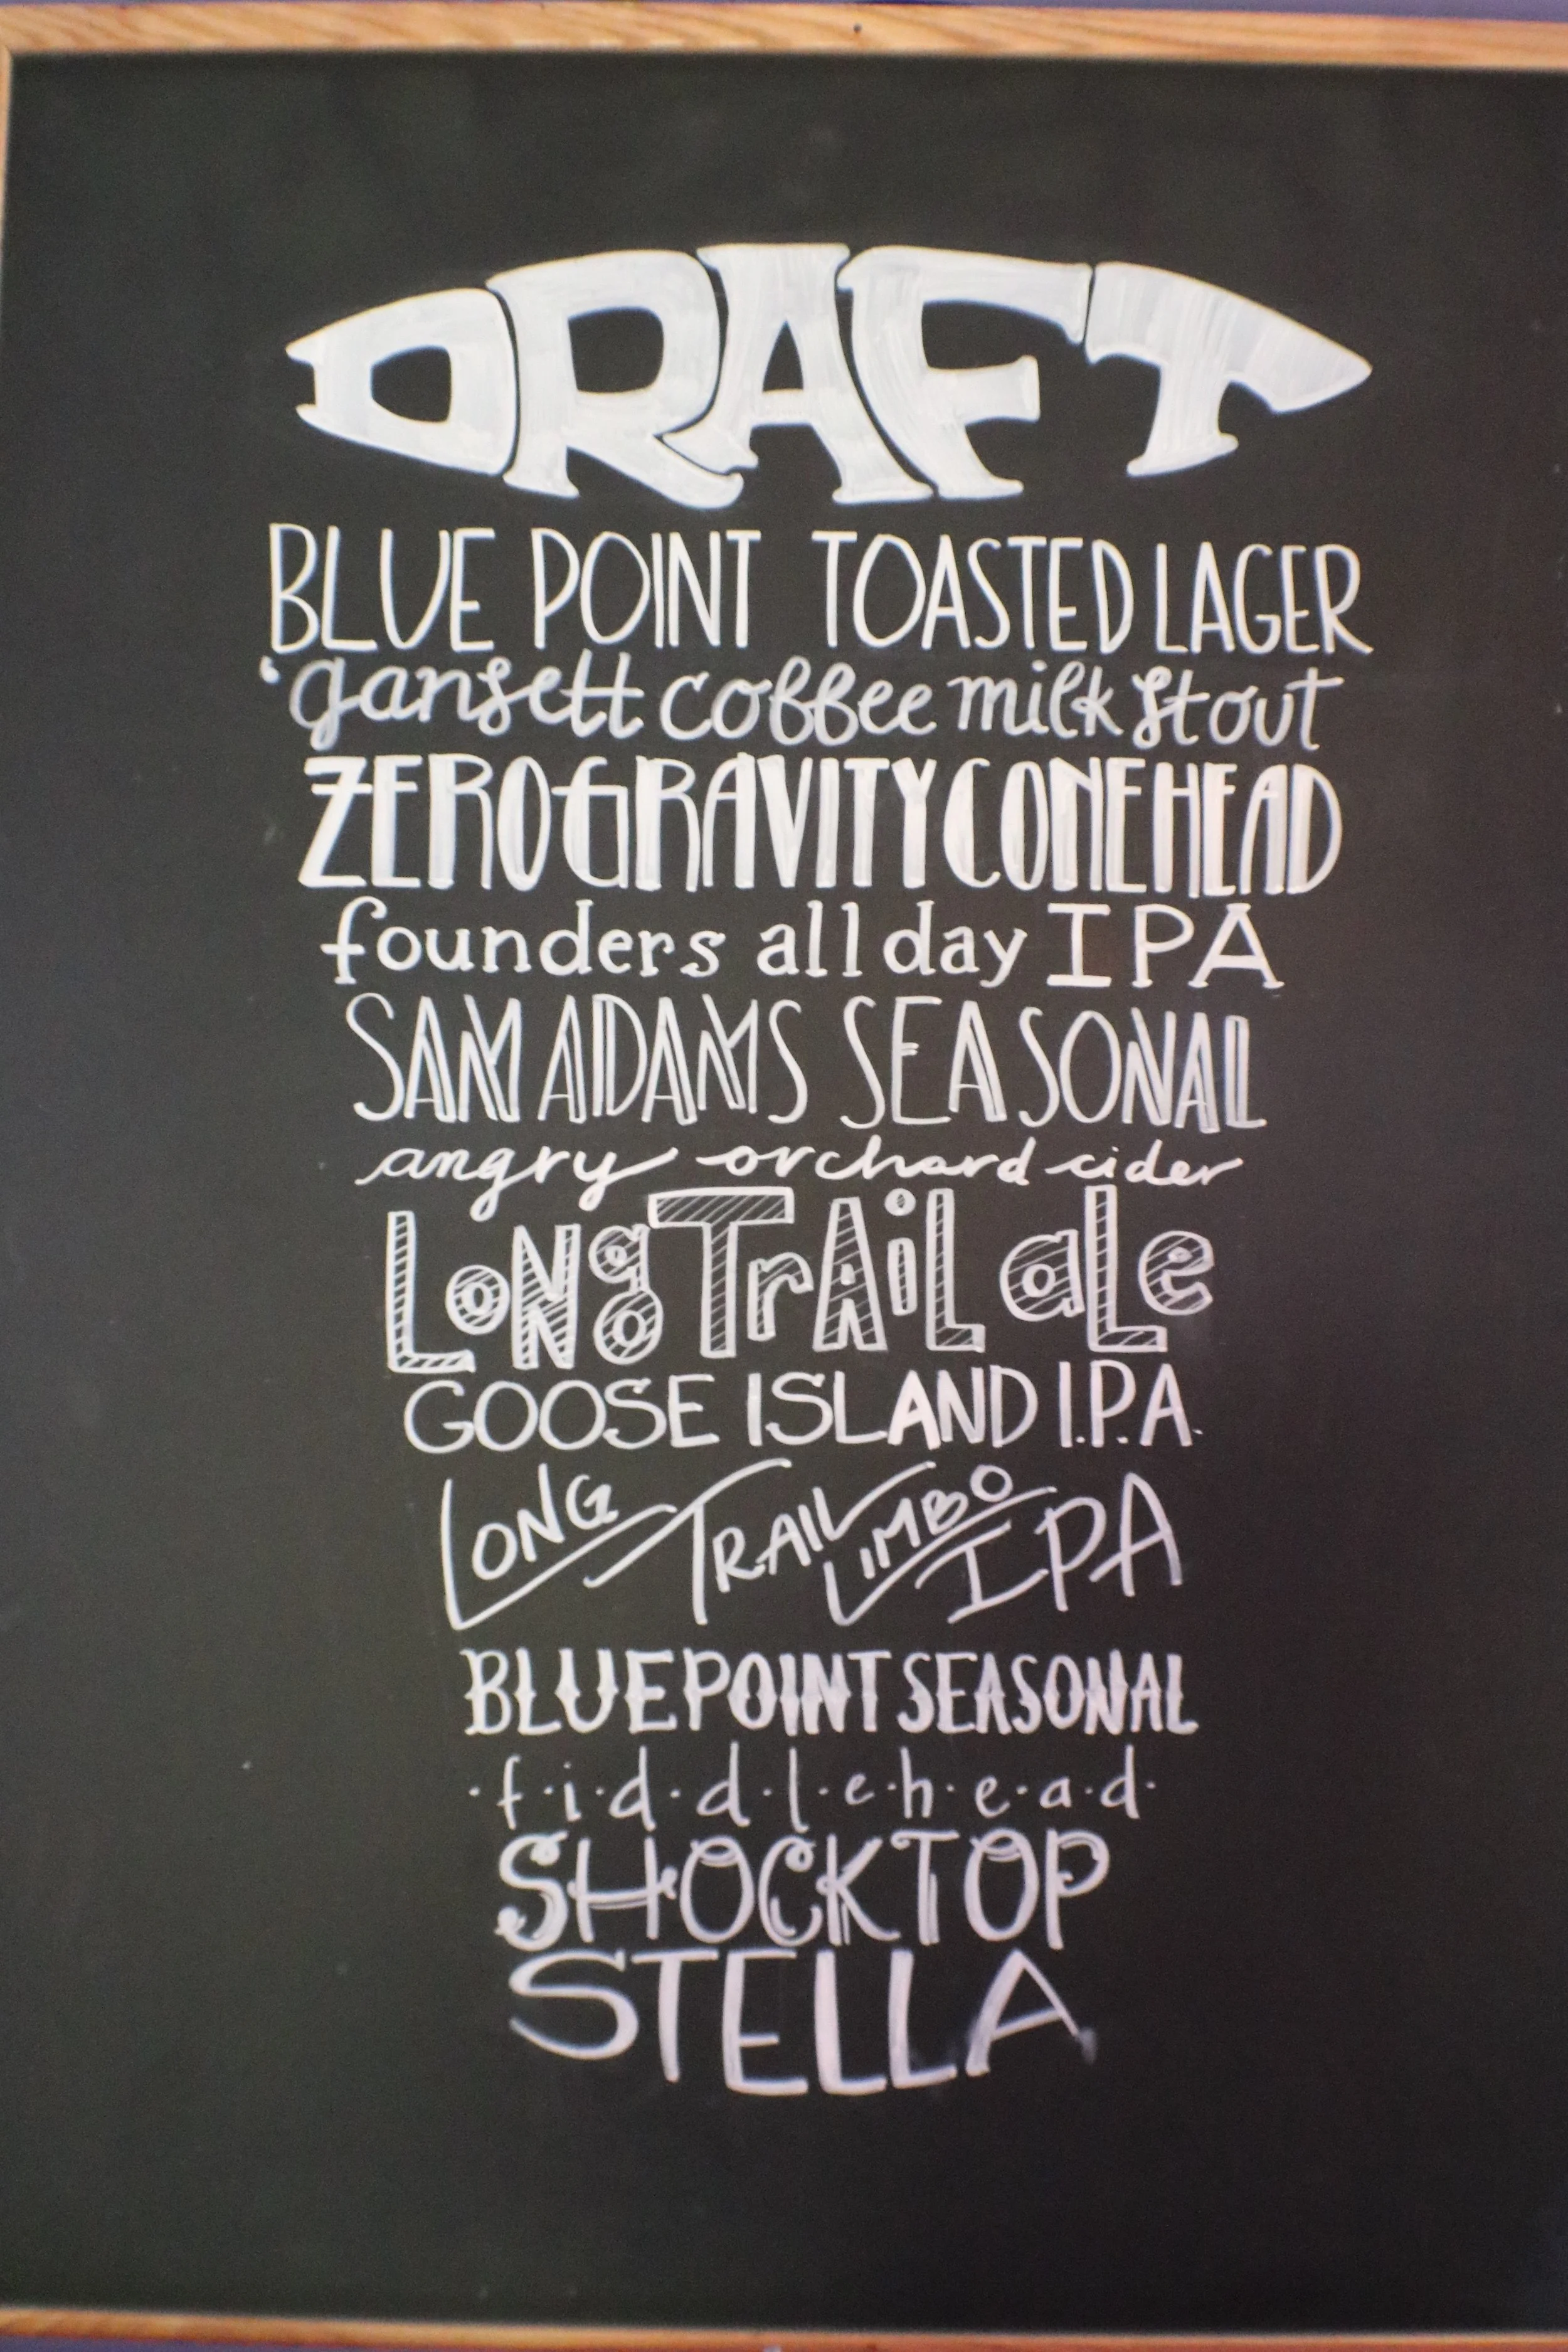 DRAFT
BLUE POINT TOASTED LAGER
'gansett coffee milk stout
ZERO GRAVITY CONEHEAD
founders all day IPA
SAM ADAMS SEASONAL
angry orchard cider
LoNg TrAiL aLe
GOOSE ISLAND I.P.A.
LONG TRAIL LIMBO IPA
BLUE POINT SEASONAL
·f·i·d·d·l·e·h·e·a·d·
SHOCKTOP
STELLA